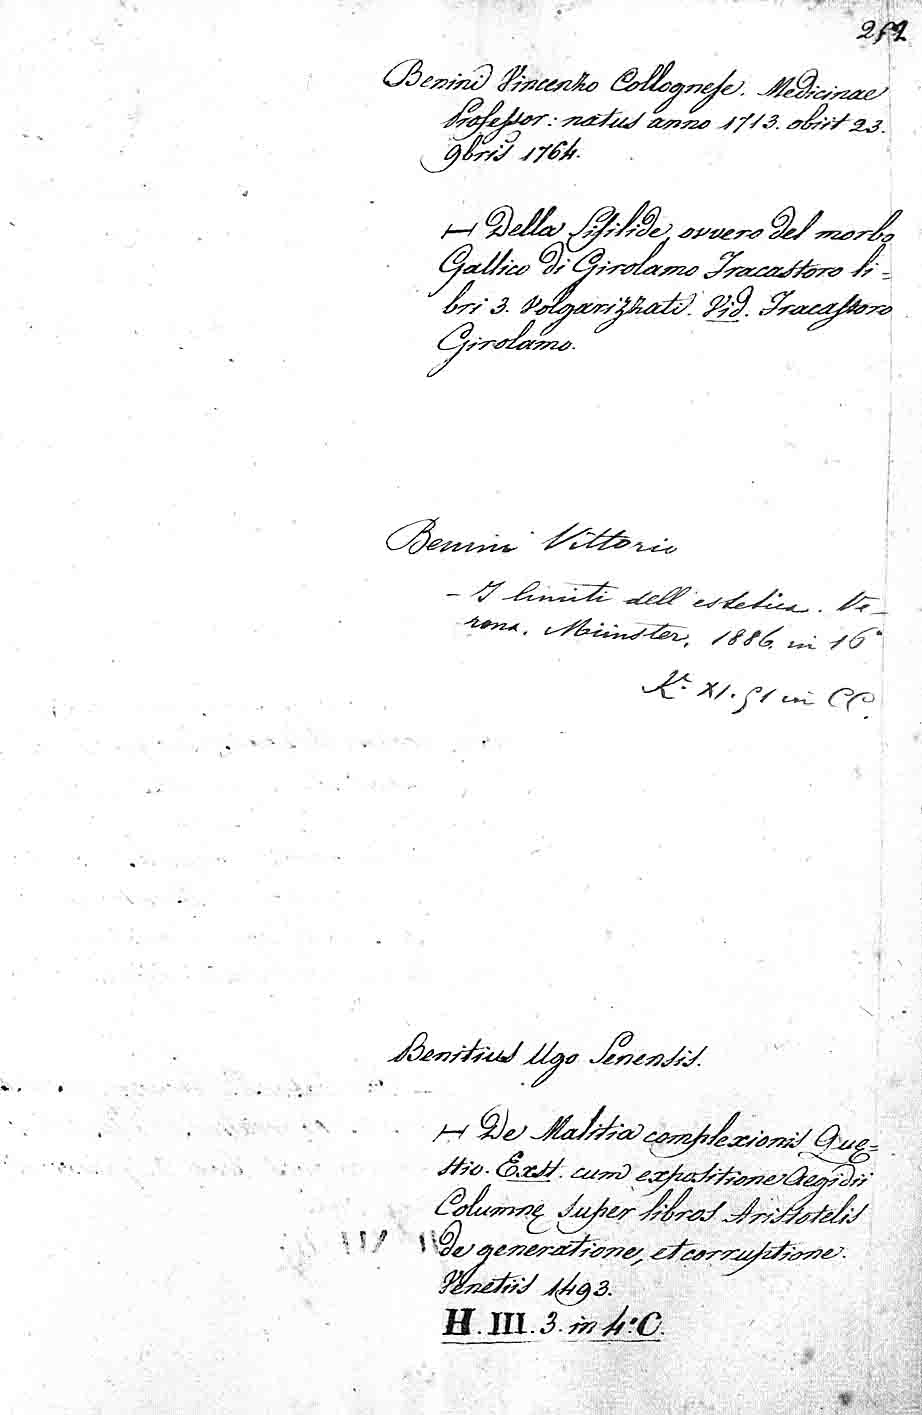 252
Benini Vincenzo Collognese. Medicinae
Professor: natus anno 1713. obiit 23.
9bris 1764.
— Della Sifilide, ovvero del morbo
Gallico di Girolamo Fracastoro li=
bri 3. Volgarizzati. Vid. Fracastoro
Girolamo.
Benini Vittorio
- I limiti dell'estetica. Ve-
rona. Münster, 1886. in 16°
Kª XI. 51 in CC.
Benitius Ugo Senensis.
— De Malitia complexionis Quę=
stio. Exst. cum expositione Aegidii
Columnę super libros Aristotelis
de generatione, et corruptione.
Venetiis 1493.
H. III. 3. in 4° C.